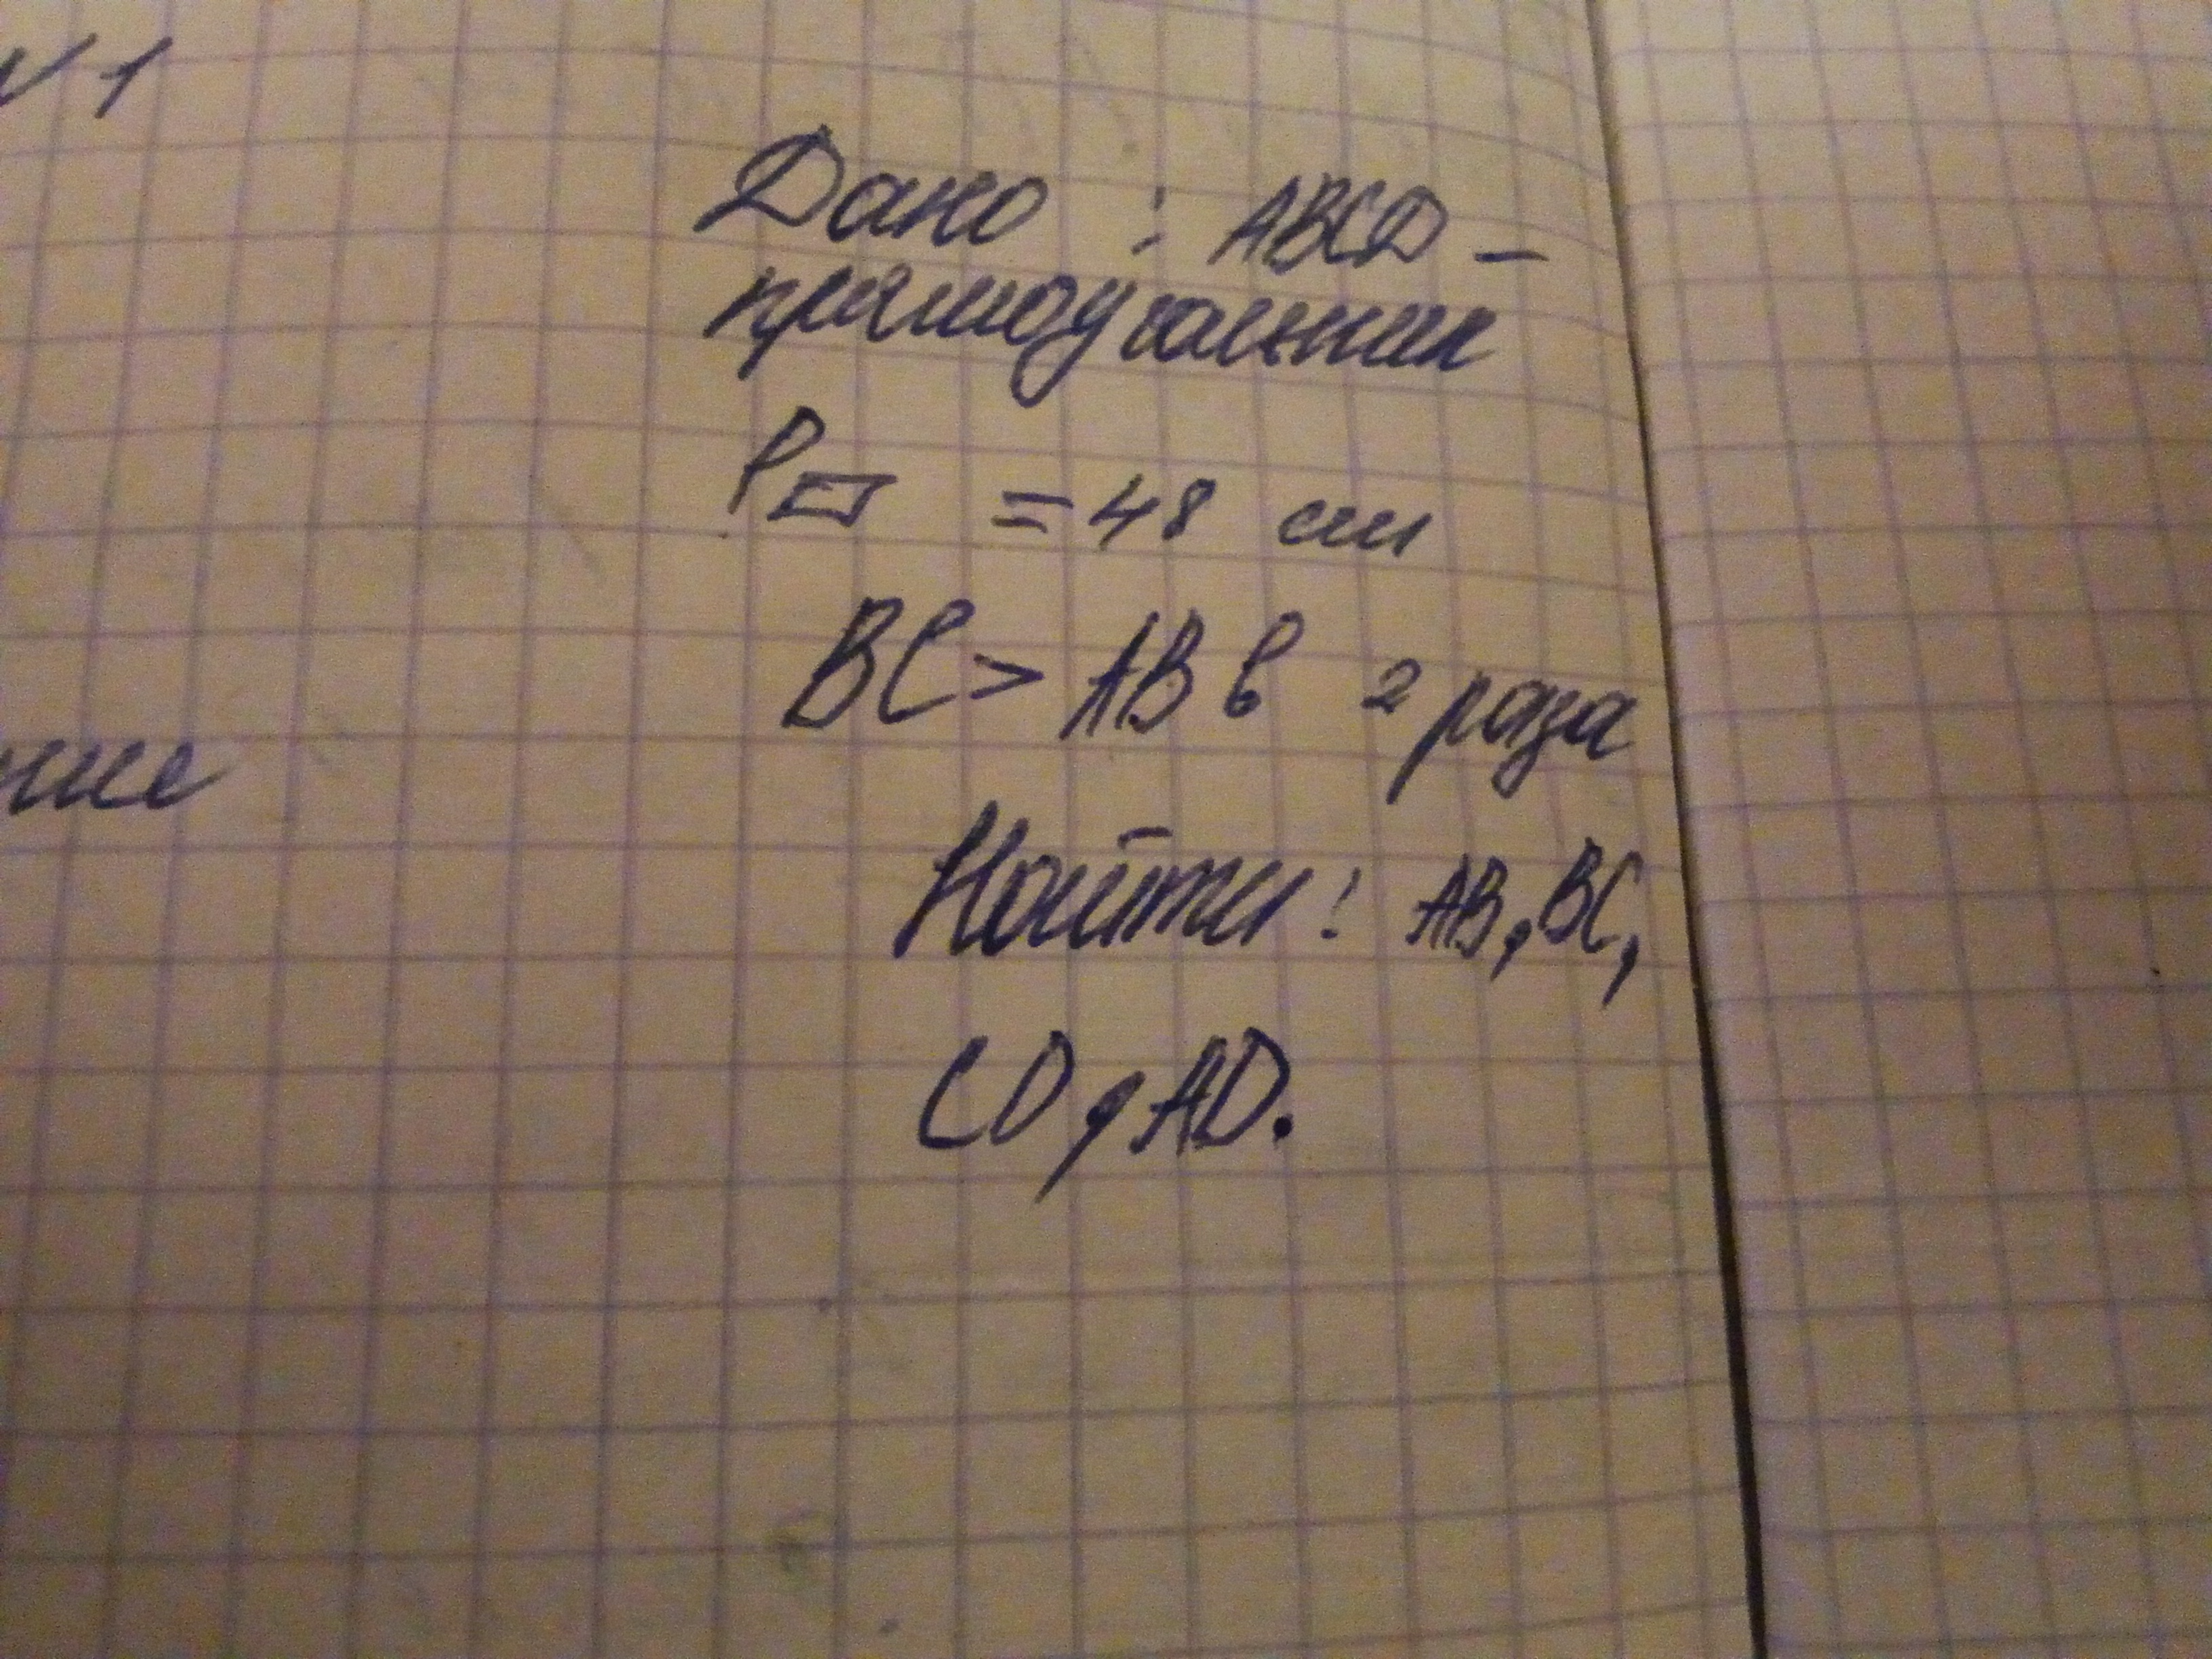 №1
Дано : ABCD –
прямоугольник
P▱ = 48 см
BC > AB в 2 раза
ние
Найти : AB, BC,
CD, AD.